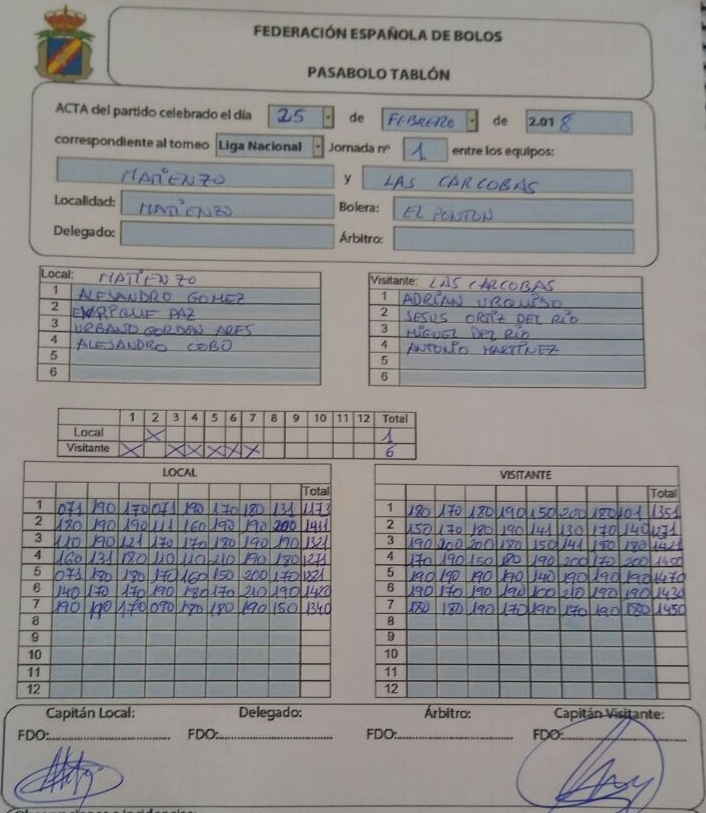 FEDERACIÓN ESPAÑOLA DE BOLOS
PASABOLO TABLÓN
ACTA del partido celebrado el día 25 de FEBRERO de 2.018
correspondiente al torneo Liga Nacional Jornada nº 1 entre los equipos:
MATIENZO y LAS CARCOBAS
Localidad: MATIENZO Bolera: EL PONTON
Delegado: Árbitro:
Local: MATIENZO
1 ALEJANDRO GOMEZ
2 ENRIQUE PAZ
3 URBANO GORDAN ARES
4 ALEJANDRO COBO
5
6
Visitante: LAS CARCOBAS
1 ADRIAN URQUIJO
2 JESUS ORTIZ DEL RIO
3 MIGUEL DEL RIO
4 ANTONIO MARTINEZ
5
6
1 2 3 4 5 6 7 8 9 10 11 12 Total
Local X 1
Visitante X X X X X X 6
LOCAL
Total
1 071 190 170 071 190 170 180 131 1173
2 180 190 190 111 160 190 190 200 1411
3 110 190 121 170 170 180 190 190 1321
4 160 131 180 110 110 210 190 180 1271
5 071 180 180 170 160 150 200 170
6 140 170 170 190 180 170 210 190 1420
7 190 190 170 090 180 180 190 150 1340
8
9
10
11
12
VISITANTE
Total
1 180 170 180 190 150 200 180 101 1351
2 150 170 180 190 141 130 170 140
3 190 200 200 180 150 141 180 180 1421
4 170 190 150 180 190 200 170 200 1450
5 190 190 190 190 140 190 190 190 1470
6 190 170 190 190 100 210 190 190 1430
7 180 180 190 170 190 170 190 180 1450
8
9
10
11
12
Capitán Local: Delegado: Árbitro: Capitán Visitante:
FDO: FDO: FDO: FDO: